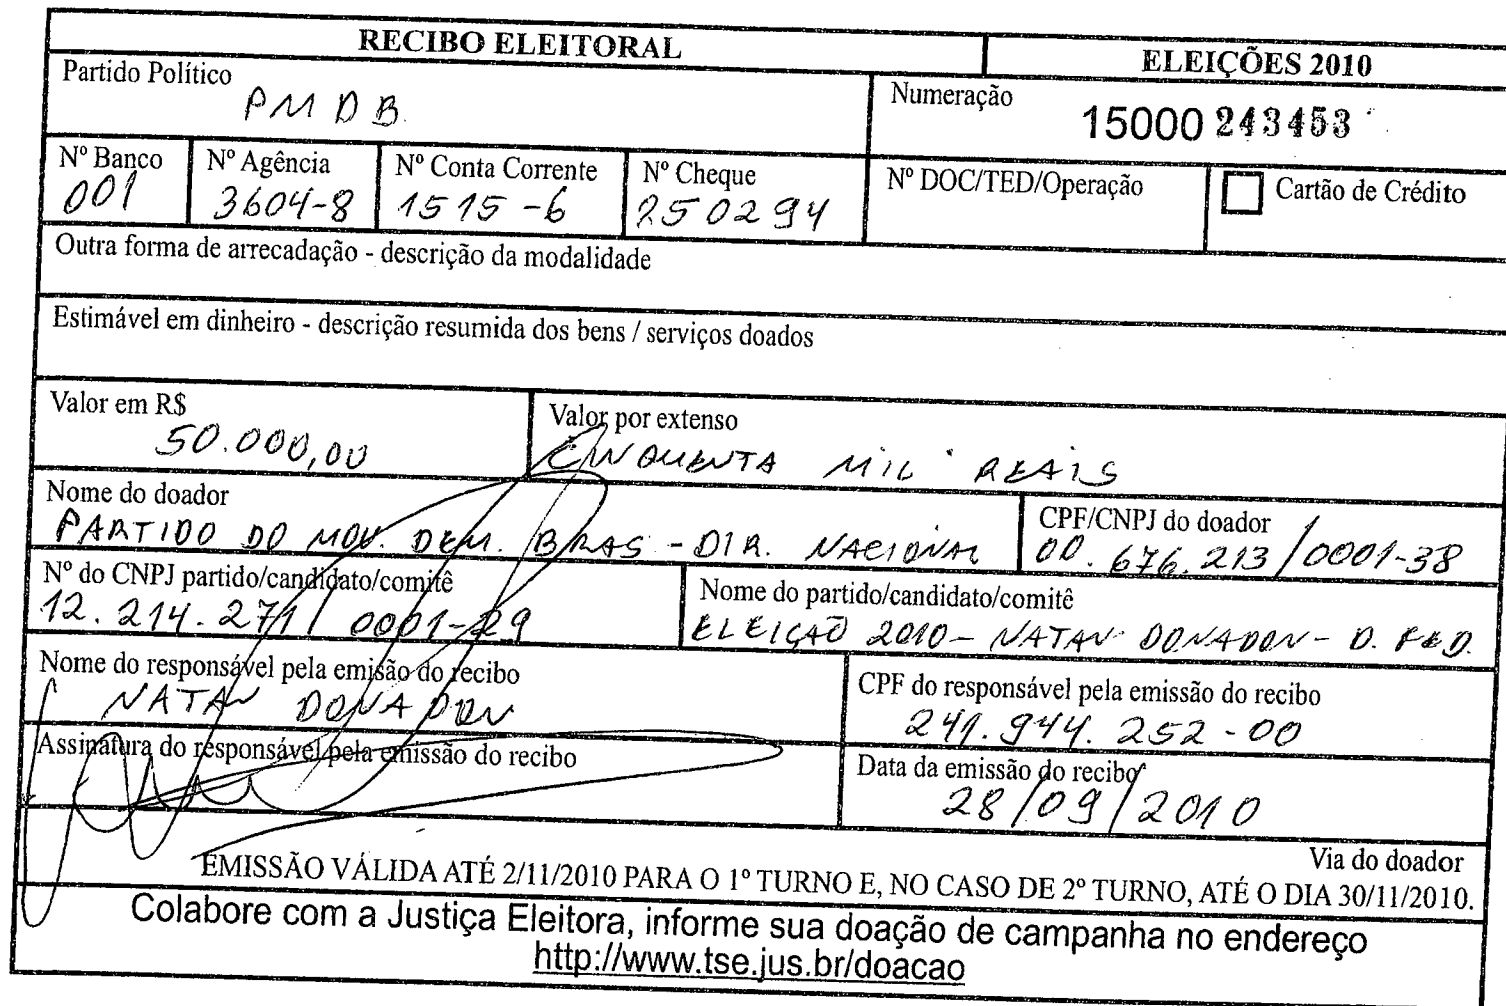 RECIBO ELEITORAL ELEIÇÕES 2010
Partido Político
PMDB
Numeração
15000 243453
Nº Banco
001
Nº Agência
3604-8
Nº Conta Corrente
1515-6
Nº Cheque
250294
Nº DOC/TED/Operação
Cartão de Crédito
Outra forma de arrecadação - descrição da modalidade
Estimável em dinheiro - descrição resumida dos bens / serviços doados
Valor em R$
50.000,00
Valor por extenso
CINQUENTA MIL REAIS
Nome do doador
PARTIDO DO MOV. DEM. BRAS - DIR. NACIONAL
CPF/CNPJ do doador
00.676.213/0001-38
Nº do CNPJ partido/candidato/comitê
12.214.271/0001-29
Nome do partido/candidato/comitê
ELEIÇÃO 2010 - NATAN DONADON - D. FED.
Nome do responsável pela emissão do recibo
NATAN DONADON
CPF do responsável pela emissão do recibo
241.944.252-00
Assinatura do responsável pela emissão do recibo
Data da emissão do recibo
28/09/2010
Via do doador
EMISSÃO VÁLIDA ATÉ 2/11/2010 PARA O 1º TURNO E, NO CASO DE 2º TURNO, ATÉ O DIA 30/11/2010.
Colabore com a Justiça Eleitora, informe sua doação de campanha no endereço
http://www.tse.jus.br/doacao